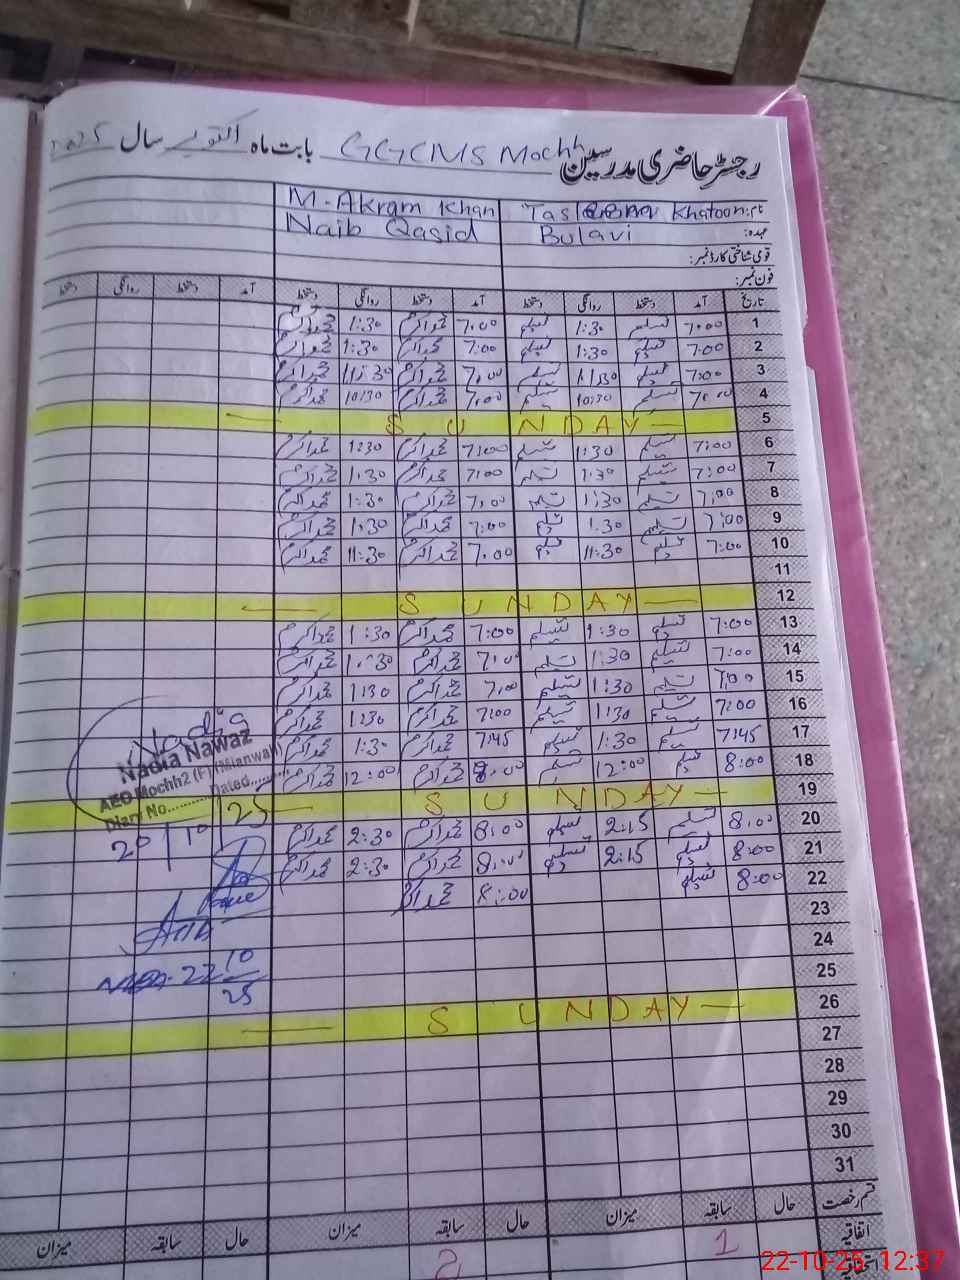 رجسٹر حاضری مدرسین GGCMS Mochh بابت ماہ اکتوبر سال 2025
نام: Khatoon M-Akram Khan
عہدہ: Bulavi Naib Qasid
قومی شناختی کارڈ نمبر:
فون نمبر:
تاریخ آمد دستخط روانگی دستخط آمد دستخط روانگی دستخط آمد دستخط روانگی دستخط
1 7:00 تسلیم 1:30 تسلیم 7:00 محمد اکرم 1:30 محمد اکرم
2 7:00 تسلیم 1:30 تسلیم 7:00 محمد اکرم 1:30 محمد اکرم
3 7:00 تسلیم 11:30 تسلیم 7:00 محمد اکرم 11:30 محمد اکرم
4 7:00 تسلیم 10:30 تسلیم 7:00 محمد اکرم 10:30 محمد اکرم
5 SUNDAY
6 7:00 تسلیم 1:30 تسلیم 7:00 محمد اکرم 1:30 محمد اکرم
7 7:00 تسلیم 1:30 تسلیم 7:00 محمد اکرم 1:30 محمد اکرم
8 7:00 تسلیم 1:30 تسلیم 7:00 محمد اکرم 1:30 محمد اکرم
9 7:00 تسلیم 1:30 تسلیم 7:00 محمد اکرم 1:30 محمد اکرم
10 7:00 تسلیم 11:30 تسلیم 7:00 محمد اکرم 11:30 محمد اکرم
11
12 SUNDAY
13 7:00 تسلیم 1:30 تسلیم 7:00 محمد اکرم 1:30 محمد اکرم
14 7:00 تسلیم 1:30 تسلیم 7:00 محمد اکرم 1:30 محمد اکرم
15 7:00 تسلیم 1:30 تسلیم 7:00 محمد اکرم 1:30 محمد اکرم
16 7:00 تسلیم 1:30 تسلیم 7:00 محمد اکرم 1:30 محمد اکرم
17 7:45 تسلیم 1:30 تسلیم 7:45 محمد اکرم 1:30 محمد اکرم
18 8:00 تسلیم 12:00 تسلیم 8:00 محمد اکرم 12:00 محمد اکرم
19 SUNDAY
20 8:00 تسلیم 2:15 تسلیم 8:00 محمد اکرم 2:30 محمد اکرم
21 8:00 تسلیم 2:15 تسلیم 8:00 محمد اکرم 2:30 محمد اکرم
22 8:00 تسلیم 8:00 محمد اکرم
23
24
25
26 SUNDAY
27
28
29
30
31
Nadia
Nadia Nawaz
AEO Mochh2 (F) (Mianwali)
Diary No.......... Dated..........
20/10/25
22 10/25
قسم رخصت حال سابقہ میزان حال سابقہ میزان حال سابقہ میزان
اتفاقیہ 1 2
22-10-25 12:37